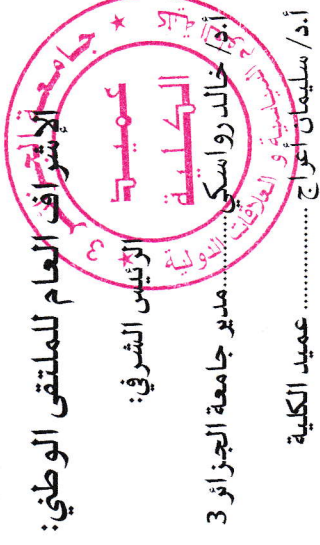 الإشراف العام للملتقى الوطني:
الرئيس الشرفي:
أ.د/ خالد رواسكي.......مدير جامعة الجزائر 3
أ.د/ سليمان أعراج .......... عميد الكلية
جامعة الجزائر 3
كلية العلوم السياسية و العلاقات الدولية
عميد
الكلية